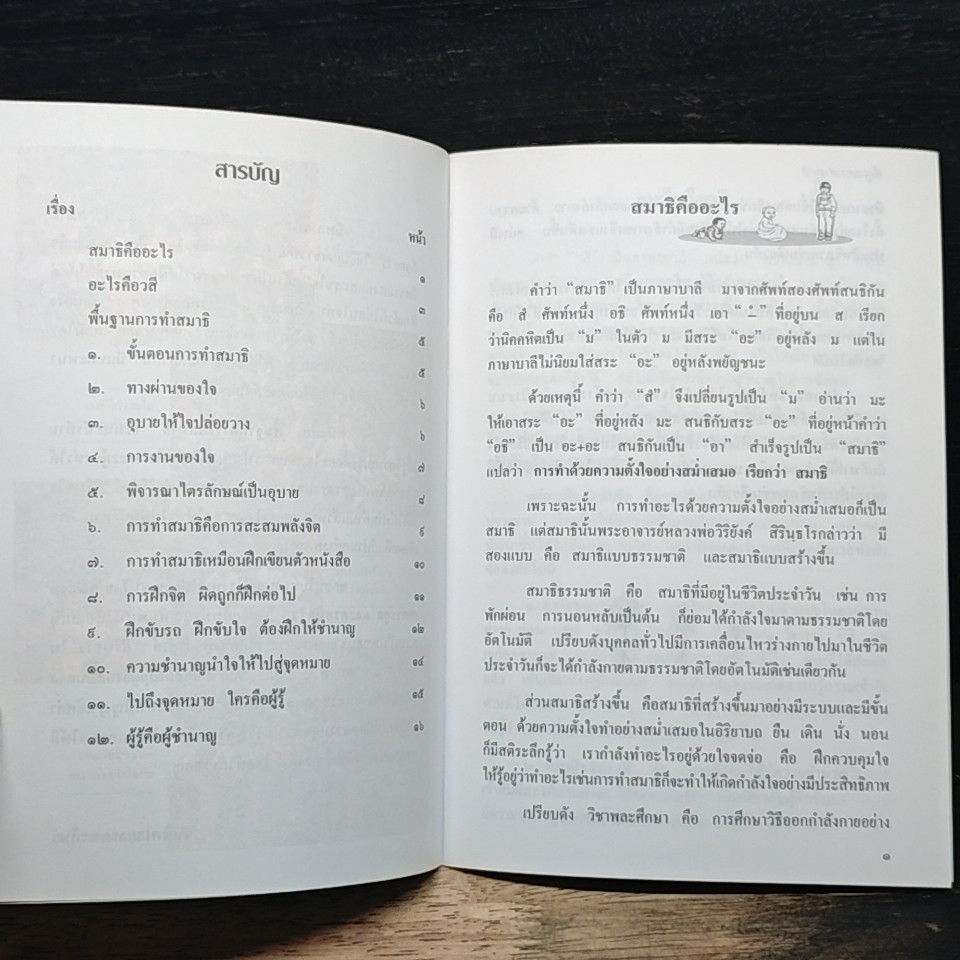 สารบัญ
เรื่อง
หน้า
สมาธิคืออะไร ๑
อะไรคือวสี ๓
พื้นฐานการทำสมาธิ ๕
๑. ขั้นตอนการทำสมาธิ ๕
๒. ทางผ่านของใจ ๖
๓. อุบายให้ใจปล่อยวาง ๖
๔. การงานของใจ ๗
๕. พิจารณาไตรลักษณ์เป็นอุบาย ๘
๖. การทำสมาธิคือการสะสมพลังจิต ๙
๗. การทำสมาธิเหมือนฝึกเขียนตัวหนังสือ ๑๐
๘. การฝึกจิต ผิดถูกก็ฝึกต่อไป ๑๑
๙. ฝึกขับรถ ฝึกขับใจ ต้องฝึกให้ชำนาญ ๑๒
๑๐. ความชำนาญนำใจให้ไปสู่จุดหมาย ๑๔
๑๑. ไปถึงจุดหมาย ใครคือผู้รู้ ๑๕
๑๒. ผู้รู้คือผู้ชำนาญ ๑๖
สมาธิคืออะไร
คำว่า “สมาธิ” เป็นภาษาบาลี มาจากศัพท์สองศัพท์สนธิกัน
คือ สํ ศัพท์หนึ่ง อธิ ศัพท์หนึ่ง เอา “–” ที่อยู่บน ส เรียก
ว่านิคคหิตเป็น “ม” ในตัว ม มีสระ “อะ” อยู่หลัง ม แต่ใน
ภาษาบาลีไม่นิยมใส่สระ “อะ” อยู่หลังพยัญชนะ
ด้วยเหตุนี้ คำว่า “สํ” จึงเปลี่ยนรูปเป็น “ม” อ่านว่า มะ
ให้เอาสระ “อะ” ที่อยู่หลัง มะ สนธิกับสระ “อะ” ที่อยู่หน้าคำว่า
“อธิ” เป็น อะ+อะ สนธิกันเป็น “อา” สำเร็จรูปเป็น “สมาธิ”
แปลว่า การทำด้วยความตั้งใจอย่างสม่ำเสมอ เรียกว่า สมาธิ
เพราะฉะนั้น การทำอะไรด้วยความตั้งใจอย่างสม่ำเสมอก็เป็น
สมาธิ แต่สมาธินั้นพระอาจารย์หลวงพ่อวิริยังค์ สิรินฺธโรกล่าวว่า มี
สองแบบ คือ สมาธิแบบธรรมชาติ และสมาธิแบบสร้างขึ้น
สมาธิธรรมชาติ คือ สมาธิที่มีอยู่ในชีวิตประจำวัน เช่น การ
พักผ่อน การนอนหลับเป็นต้น ก็ย่อมได้กำลังใจมาตามธรรมชาติโดย
อัตโนมัติ เปรียบดังบุคคลทั่วไปมีการเคลื่อนไหวร่างกายไปมาในชีวิต
ประจำวันก็จะได้กำลังกายตามธรรมชาติโดยอัตโนมัติเช่นเดียวกัน
ส่วนสมาธิสร้างขึ้น คือสมาธิที่สร้างขึ้นมาอย่างมีระบบและมีขั้น
ตอน ด้วยความตั้งใจทำอย่างสม่ำเสมอในอิริยาบถ ยืน เดิน นั่ง นอน
ก็มีสติระลึกรู้ว่า เรากำลังทำอะไรอยู่ด้วยใจจดจ่อ คือ ฝึกควบคุมใจ
ให้รู้อยู่ว่าทำอะไรเช่นการทำสมาธิก็จะทำให้เกิดกำลังใจอย่างมีประสิทธิภาพ
เปรียบดัง วิชาพละศึกษา คือ การศึกษาวิธีออกกำลังกายอย่าง
๑